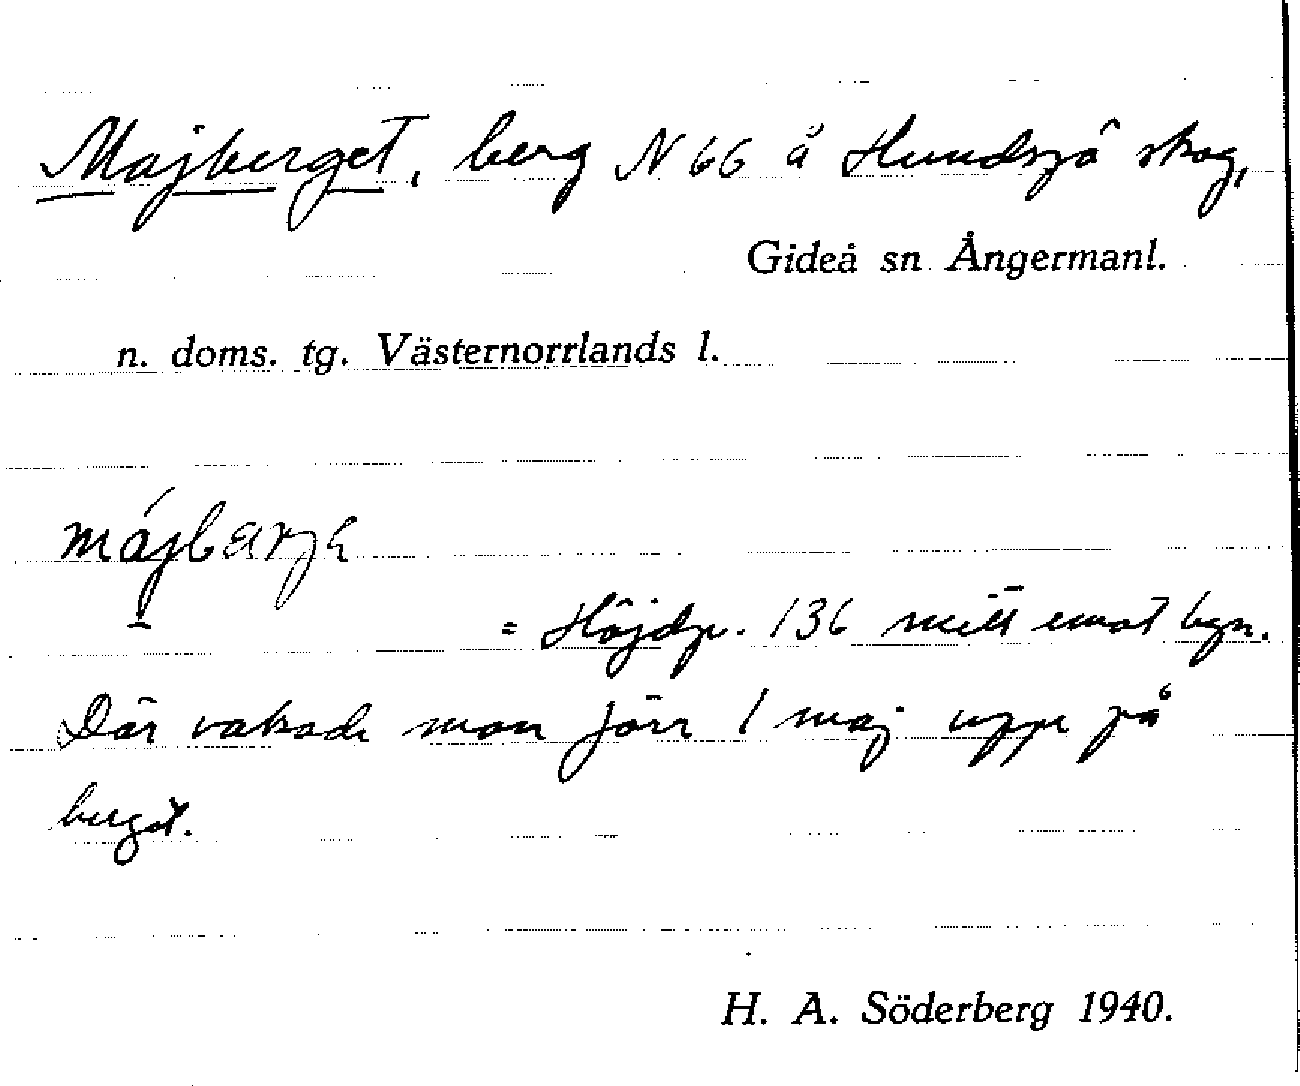 Majberget, berg N 66 å Hundsjö skog,
Gideå sn Ångermanl.
n. doms. tg. Västernorrlands l.
májbærje
= Höjdp. 136 mitt emot byn.
Där vakade man förr 1 maj uppe på
berget.
H. A. Söderberg 1940.